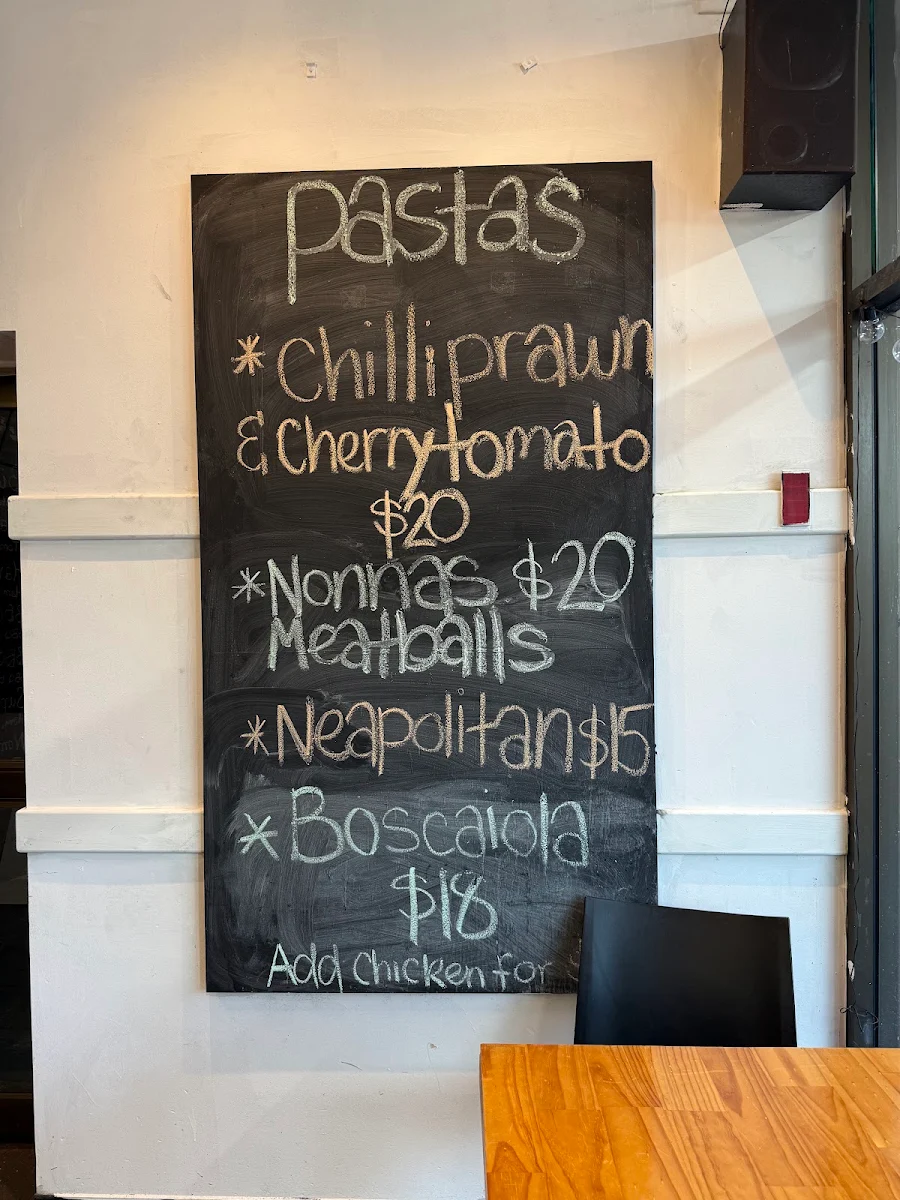 pastas
*Chilli prawn
& Cherry tomato
$20
*Nonnas $20
Meatballs
*Neapolitan $15
*Boscaiola
$18
Add Chicken for